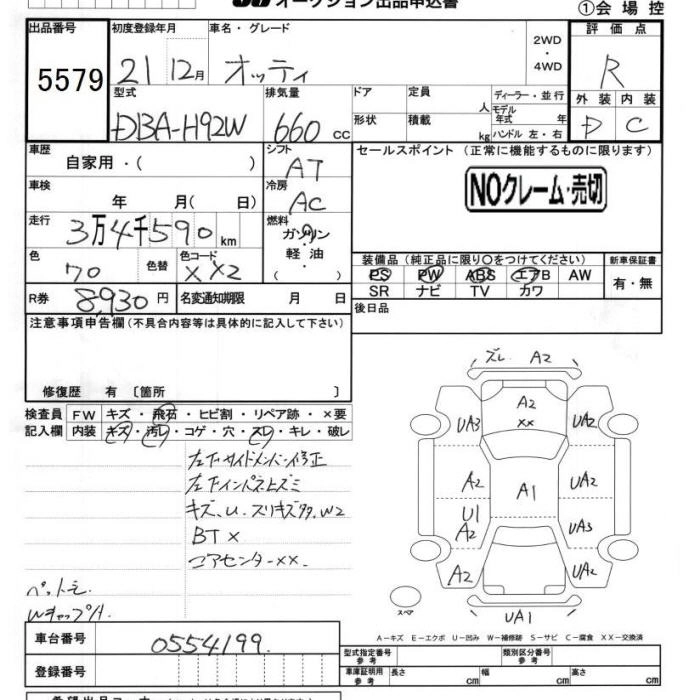 オークション出品申込書
①会場控
出品番号 初度登録年月 車名・グレード 2WD・4WD 評価点
5579 21 12月 オッティ R
型式 排気量 ドア 定員 人 ディーラー・並行 外装 内装
DBA-H92W 660cc 形状 積載 kg モデル年式 年 ハンドル 左・右 D C
車歴 自家用・( ) シフト AT セールスポイント (正常に機能するものに限ります)
車検 年 月( 日) 冷房 AC NOクレーム・売切
走行 3万4千590km 燃料 ガソリン
軽油
( )
色 70 色替 色コード XX2 装備品(純正品に限り○をつけてください) 新車保証書
PS PW ABS エアB AW 有・無
SR ナビ TV カワ
R券 8,930円 名変通知期限 月 日 後日品
注意事項申告欄(不具合内容等は具体的に記入して下さい)
修復歴 有〔箇所 〕
検査員 FW キズ・飛石・ヒビ割・リペア跡・×要
記入欄 内装 キズ・汚レ・コゲ・穴・スレ・キレ・破レ
左下サイドメンバー修正
キズ、U、スリキズ多、W2
BT×
コアセンターXX.
ズレ A2
A2
XX
UA3 UA2
A2 A1 UA2
U1
A2 UA3
A2 UA2
UA1
スペア
A－キズ E－エクボ U－凹み W－補修跡 S－サビ C－腐食 XX－交換済
車台番号 0554199.
登録番号
型式指定番号 参考 類別区分番号 参考
車庫証明用 参考 長さ cm 幅 cm 高さ cm